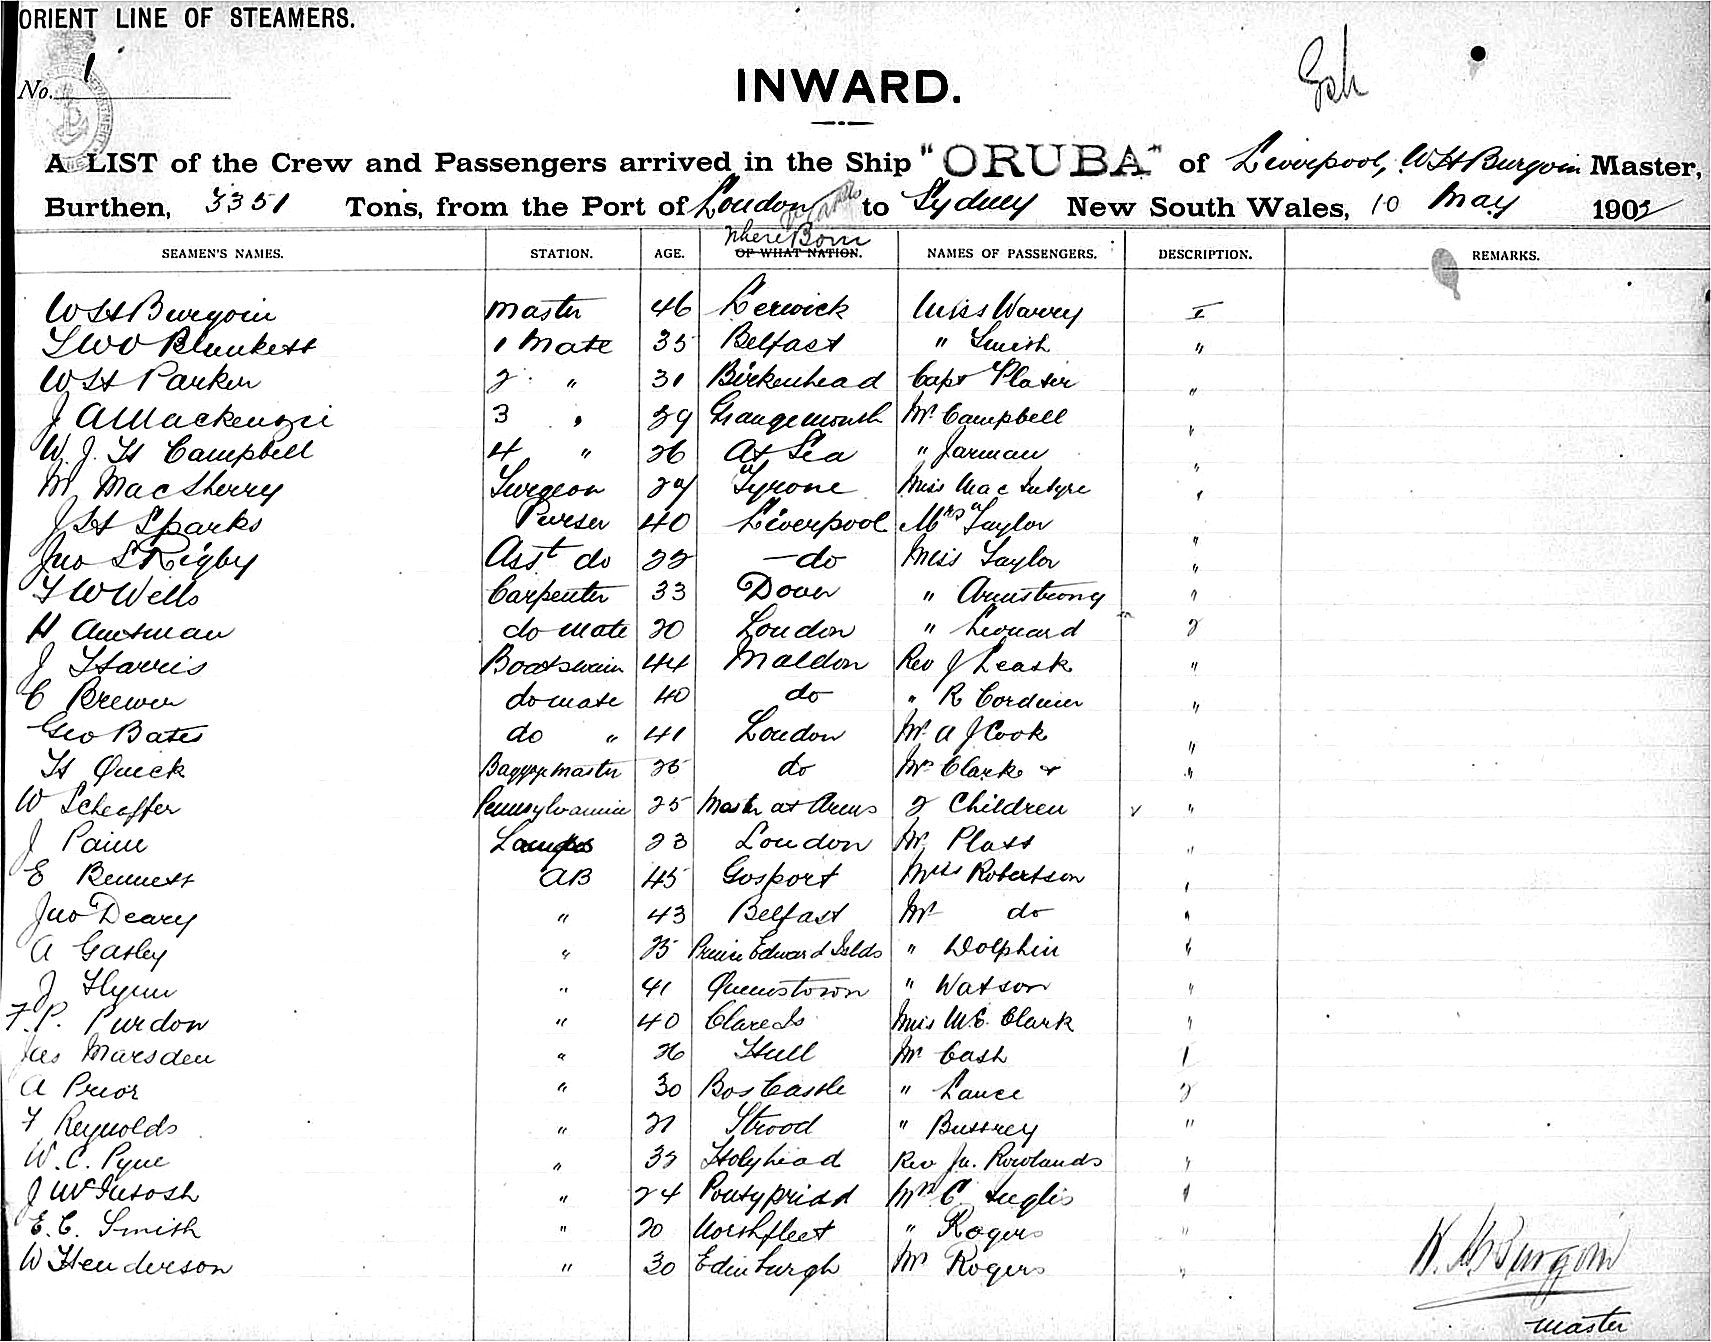 ORIENT LINE OF STEAMERS.
No. 1
INWARD.
A LIST of the Crew and Passengers arrived in the Ship "ORUBA" of Liverpool, W H Burgoin Master,
Burthen, 3351 Tons, from the Port of London to Sydney New South Wales, 10 May 1902
Where Born
SEAMEN'S NAMES. STATION. AGE. OF WHAT NATION. NAMES OF PASSENGERS. DESCRIPTION. REMARKS.
W H Burgoin Master 46 Lerwick Miss Warry I
Blunkett 1 Mate 35 Belfast " Smith "
W H Parker 2 " 31 Birkenhead Capt "
J A Mackenzie 3 " 29 Grangemouth Mr Campbell "
W. J. H Campbell 4 " 26 At Sea " Jarman "
M MacSherry Surgeon 27 Tyrone Miss MacIntyre "
J H Sparks Purser 40 Liverpool Mrs Taylor "
Jno S Rigby Asst do 22 do Miss Taylor "
F W Wells Carpenter 33 Dover " Armstrong "
H do mate 20 London " Leonard 2
J Harris Boatswain 44 Maldon Rev J Leask "
C Brewer do mate 40 do " R Cordiner "
Geo Bates do " 41 London Mr A J Cook "
H Quick Bagge master 25 do Mr Clarke + "
W Scheaffer Pennsylvania 25 Master at Arms 2 Children "
J Paine Lamps 23 London Mr Platt "
E Bennett AB 45 Gosport Miss Robertson "
Jno Deary " 43 Belfast Mr do "
A Gatley " 25 Prince Edward Islds " Dolphin "
J Flynn " 41 Queenstown " Watson "
F. P. Purdon " 40 Clare Is Miss M.E. Clark "
Jas Marsden " 26 Hull Mr Cash 1
A Prior " 30 Bos Castle " Lance 2
F Reynolds " 21 Strood " "
W. C. Pyne " 32 Holyhead Rev Jn. Rowlands "
J McIntosh " 24 Pontypridd C Inglis "
E. C. Smith " 20 Northfleet " Rogers "
W Henderson " 30 Edinburgh Mr Rogers "
W. H Burgoin
Master